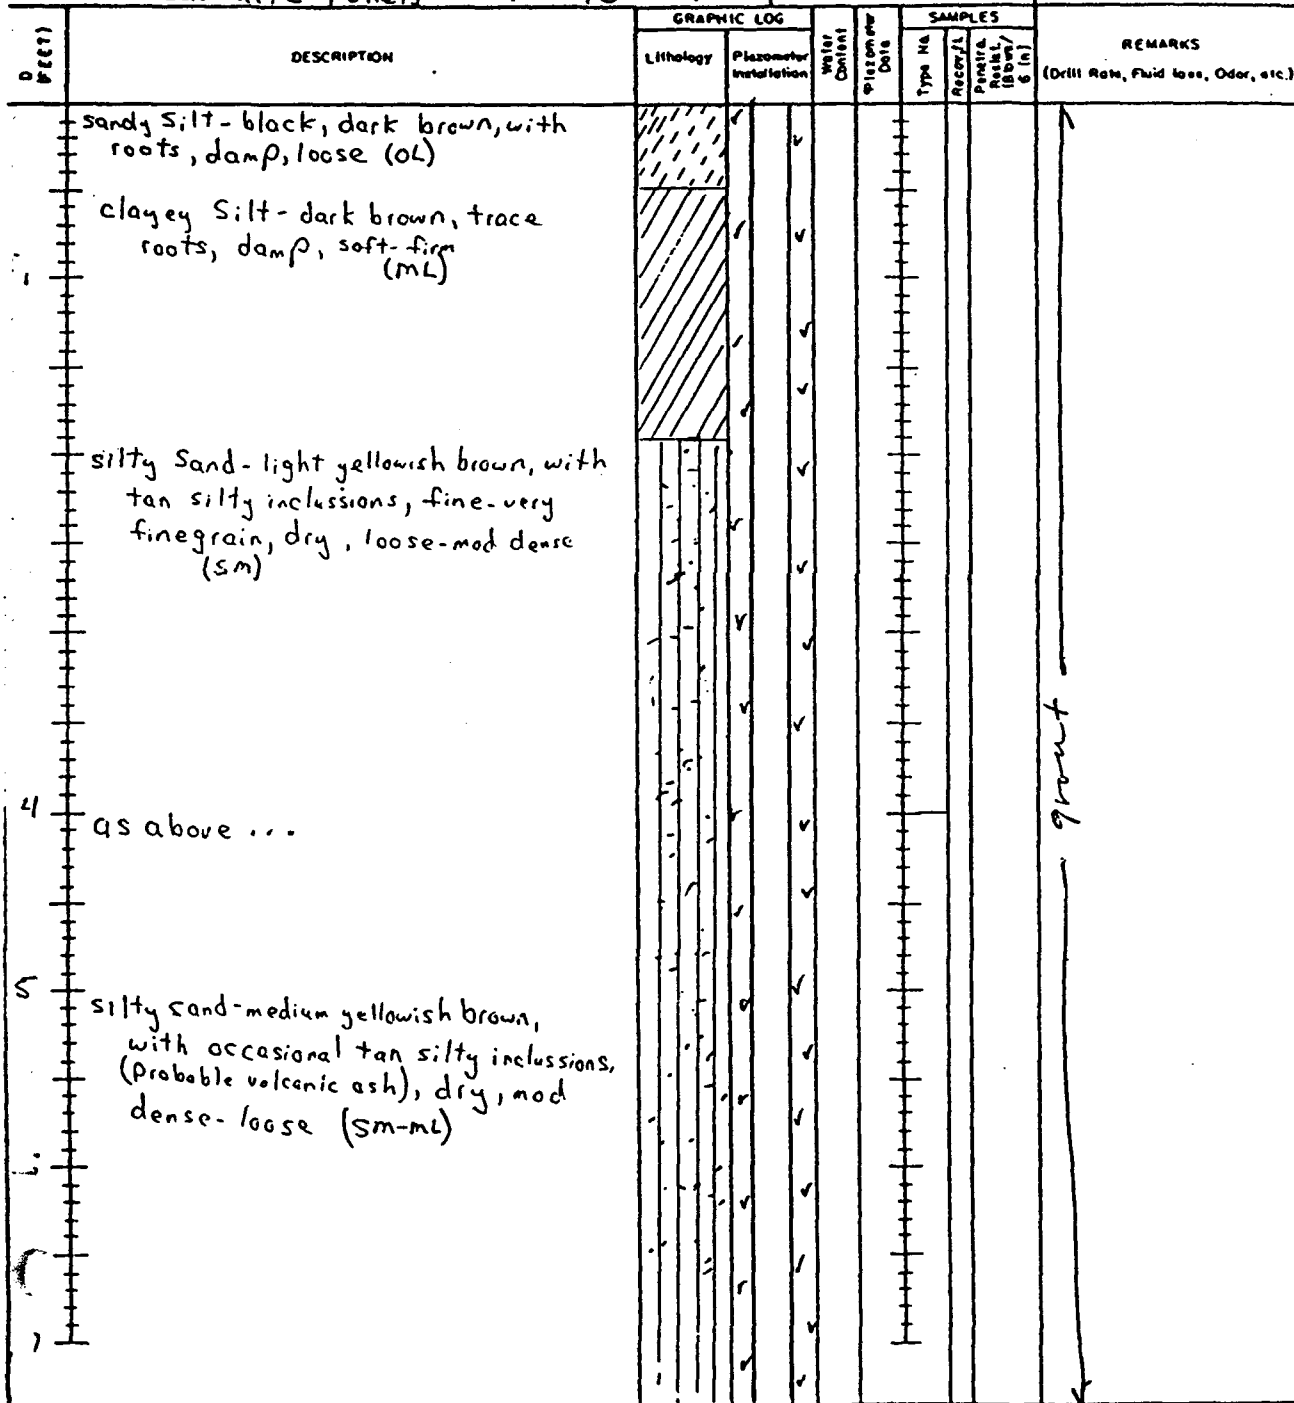 GRAPHIC LOG
SAMPLES
DESCRIPTION
Lithology
Piezometer Installation
Water Content
Piezometer Data
Type No
REMARKS
(Drill Rate, Fluid loss, Odor, etc.)
sandy Silt - black, dark brown, with
roots, damp, loose (OL)
clayey Silt - dark brown, trace
roots, damp, soft-firm
(mL)
silty Sand - light yellowish brown, with
tan silty inclussions, fine-very
finegrain, dry, loose-mod dense
(sm)
grout
4
as above ...
5
silty sand - medium yellowish brown,
with occasional tan silty inclussions,
(Probable volcanic ash), dry, mod
dense-loose (sm-mL)